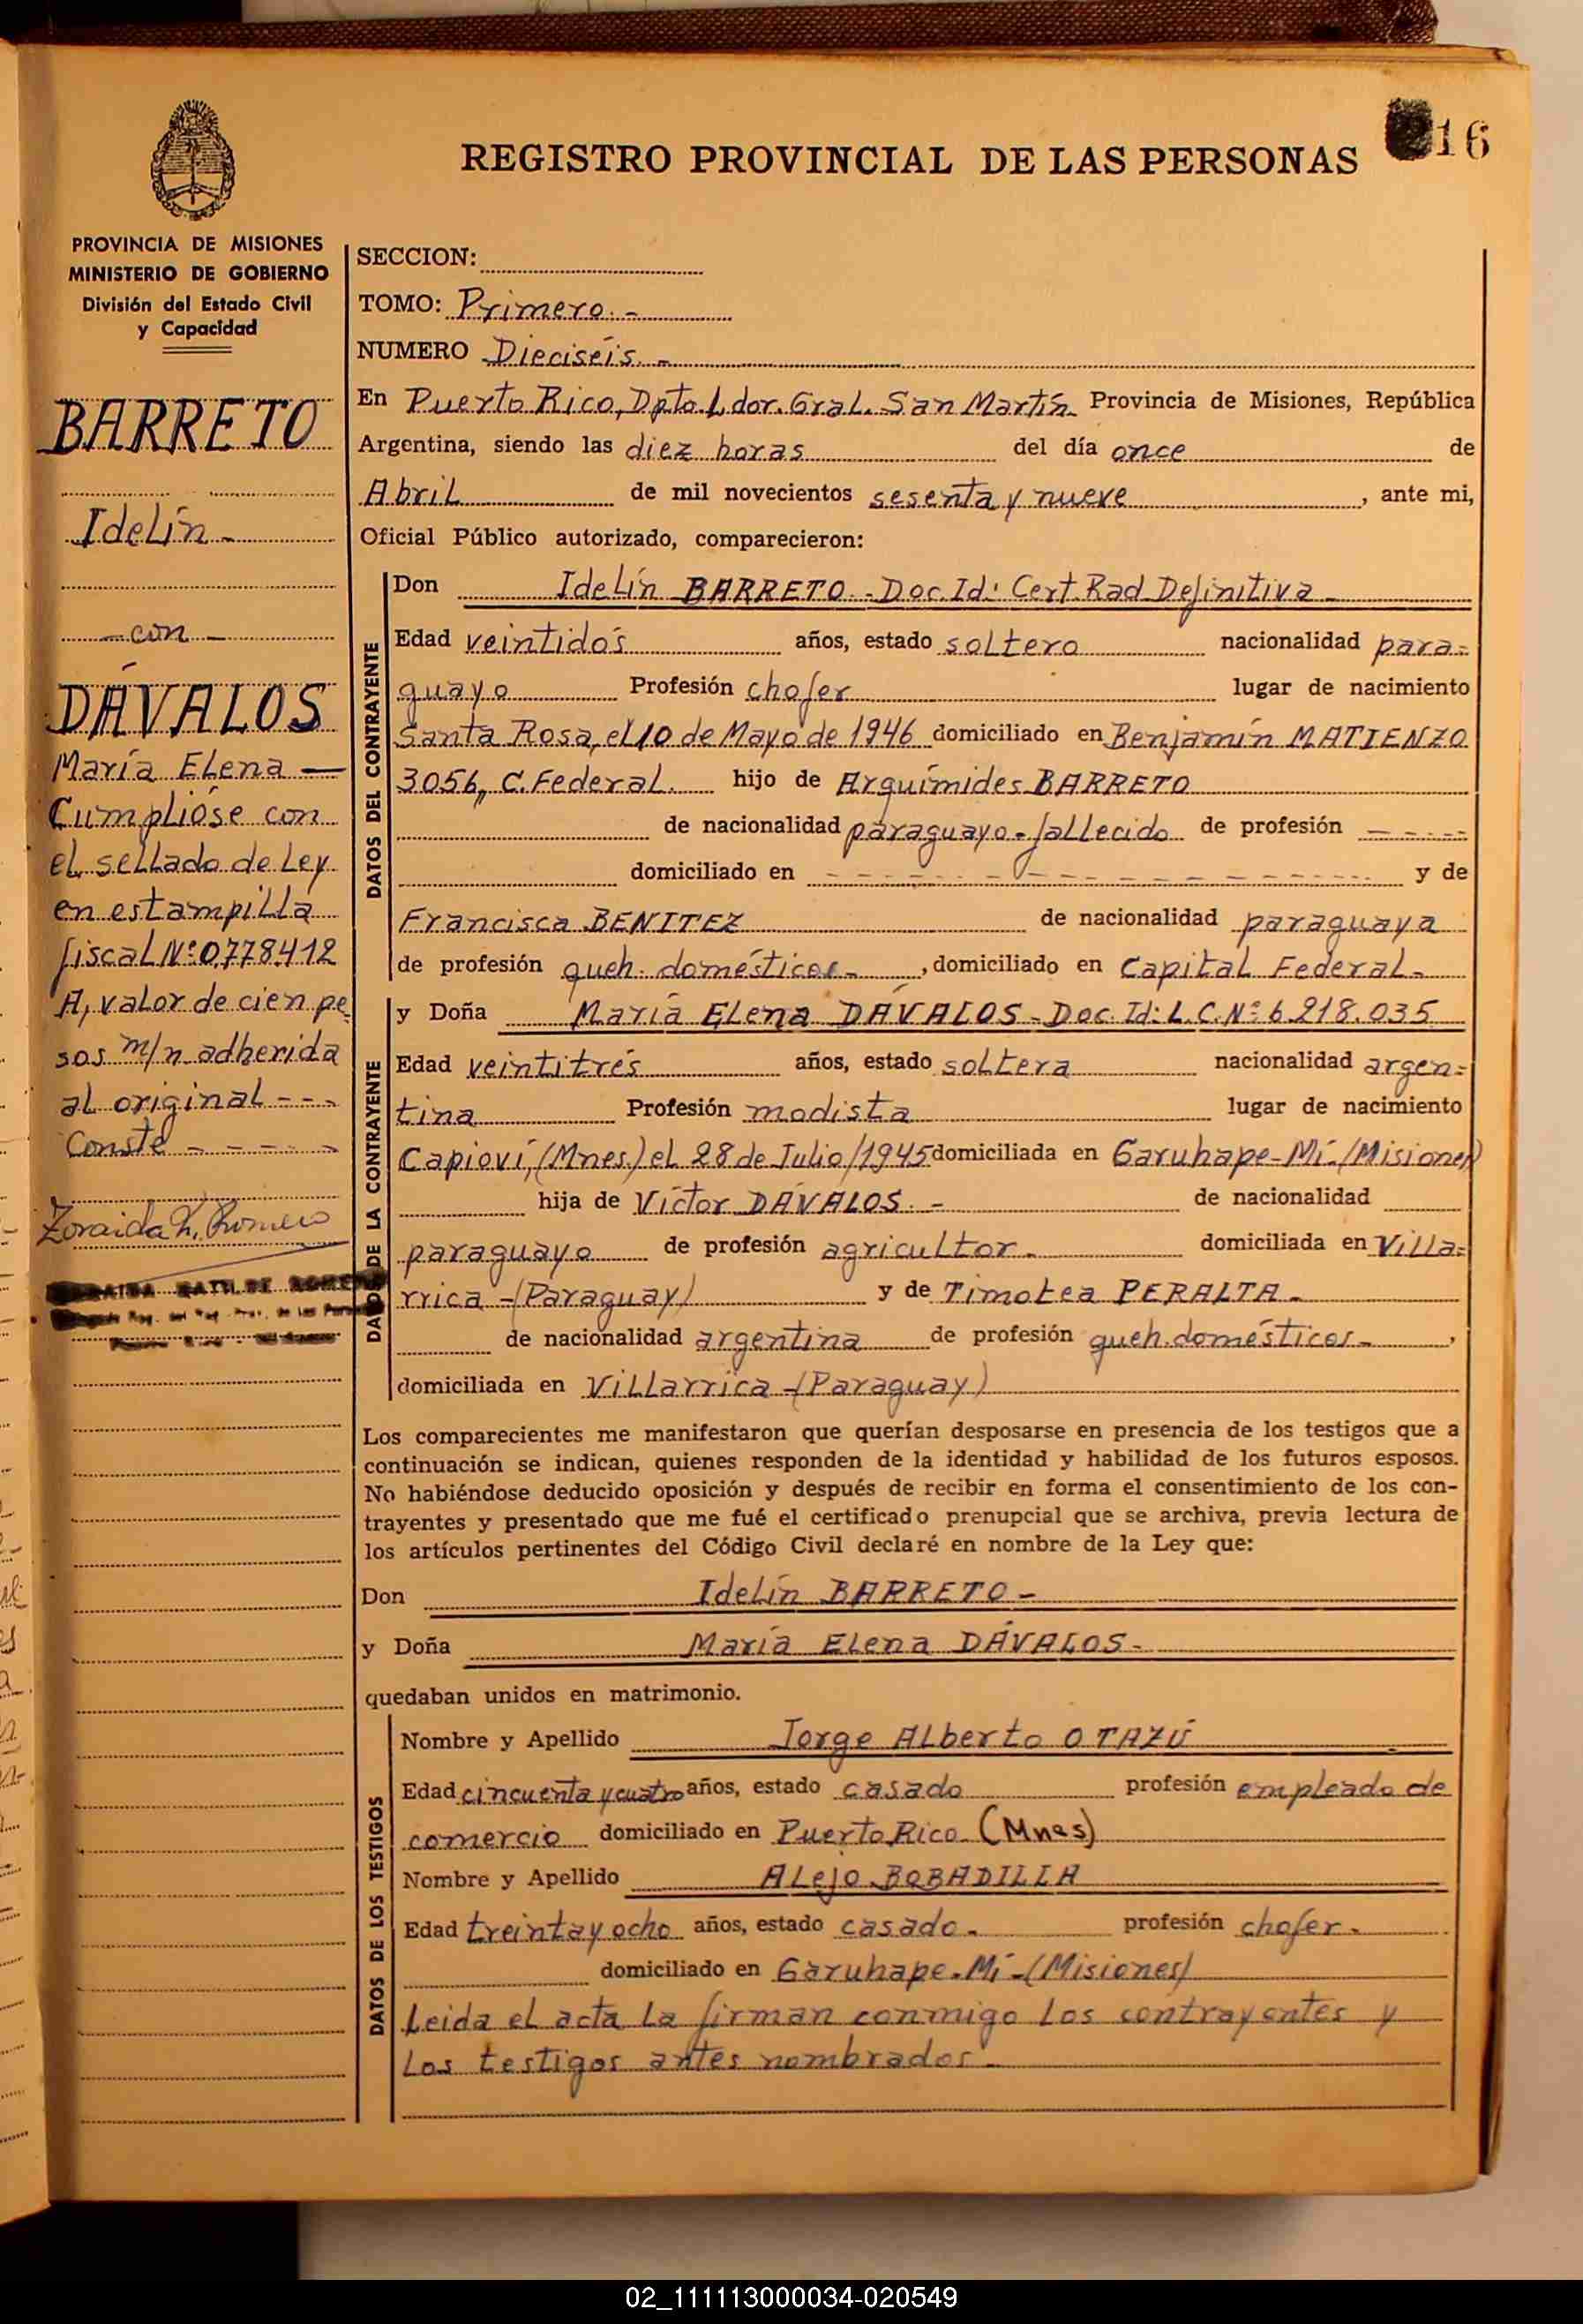 16
REGISTRO PROVINCIAL DE LAS PERSONAS
PROVINCIA DE MISIONES
MINISTERIO DE GOBIERNO
División del Estado Civil
y Capacidad
BARRETO
Idelín -
- con -
DÁVALOS
María Elena —
Cumplióse con
el sellado de Ley
en estampilla
fiscal Nº 0778412
A, valor de cien pe
sos m/n adherida
al original - - -
Conste - - - - -
Zoraida M. Romero
ZORAIDA MATILDE ROMERO
SECCION:
TOMO: Primero. -
NUMERO Dieciséis. -
En Puerto Rico, Dpto. L.dor. Gral. San Martín Provincia de Misiones, República
Argentina, siendo las diez horas del día once de
Abril de mil novecientos sesenta y nueve, ante mi,
Oficial Público autorizado, comparecieron:
DATOS DEL CONTRAYENTE
Don Idelín BARRETO - Doc. Id: Cert. Rad Definitiva -
Edad veintidós años, estado soltero nacionalidad para=
guayo Profesión chofer lugar de nacimiento
Santa Rosa, el 10 de Mayo de 1946 domiciliado en Benjamín MATIENZO
3056, C. Federal. hijo de Arquímides BARRETO
de nacionalidad paraguayo - fallecido de profesión - - - - -
domiciliado en - - - - - - - - - - - - y de
Francisca BENITEZ de nacionalidad paraguaya
de profesión queh. domésticos -, domiciliado en Capital Federal -
DATOS DE LA CONTRAYENTE
y Doña María Elena DÁVALOS - Doc. Id: L.C. Nº 6.218.035
Edad veintitrés años, estado soltera nacionalidad argen=
tina Profesión modista lugar de nacimiento
Capioví, (Mnes.) el 28 de Julio/1945 domiciliada en Garuhape-Mí-(Misiones)
hija de Víctor DÁVALOS. - de nacionalidad
paraguayo de profesión agricultor - domiciliada en Villa=
rrica -(Paraguay) y de Timotea PERALTA -
de nacionalidad argentina de profesión queh. domésticos -,
domiciliada en Villarrica -(Paraguay)
Los comparecientes me manifestaron que querían desposarse en presencia de los testigos que a
continuación se indican, quienes responden de la identidad y habilidad de los futuros esposos.
No habiéndose deducido oposición y después de recibir en forma el consentimiento de los con-
trayentes y presentado que me fué el certificado prenupcial que se archiva, previa lectura de
los artículos pertinentes del Código Civil declaré en nombre de la Ley que:
Don Idelín BARRETO -
y Doña María Elena DÁVALOS -
quedaban unidos en matrimonio.
DATOS DE LOS TESTIGOS
Nombre y Apellido Jorge Alberto OTAZÚ
Edad cincuenta y cuatro años, estado casado profesión empleado de
comercio domiciliado en Puerto Rico (Mnes)
Nombre y Apellido Alejo BOBADILLA
Edad treinta y ocho años, estado casado - profesión chofer -
domiciliado en Garuhape-Mí-(Misiones)
Leida el acta la firman conmigo los contrayentes y
los testigos antes nombrados -
02_111113000034-020549